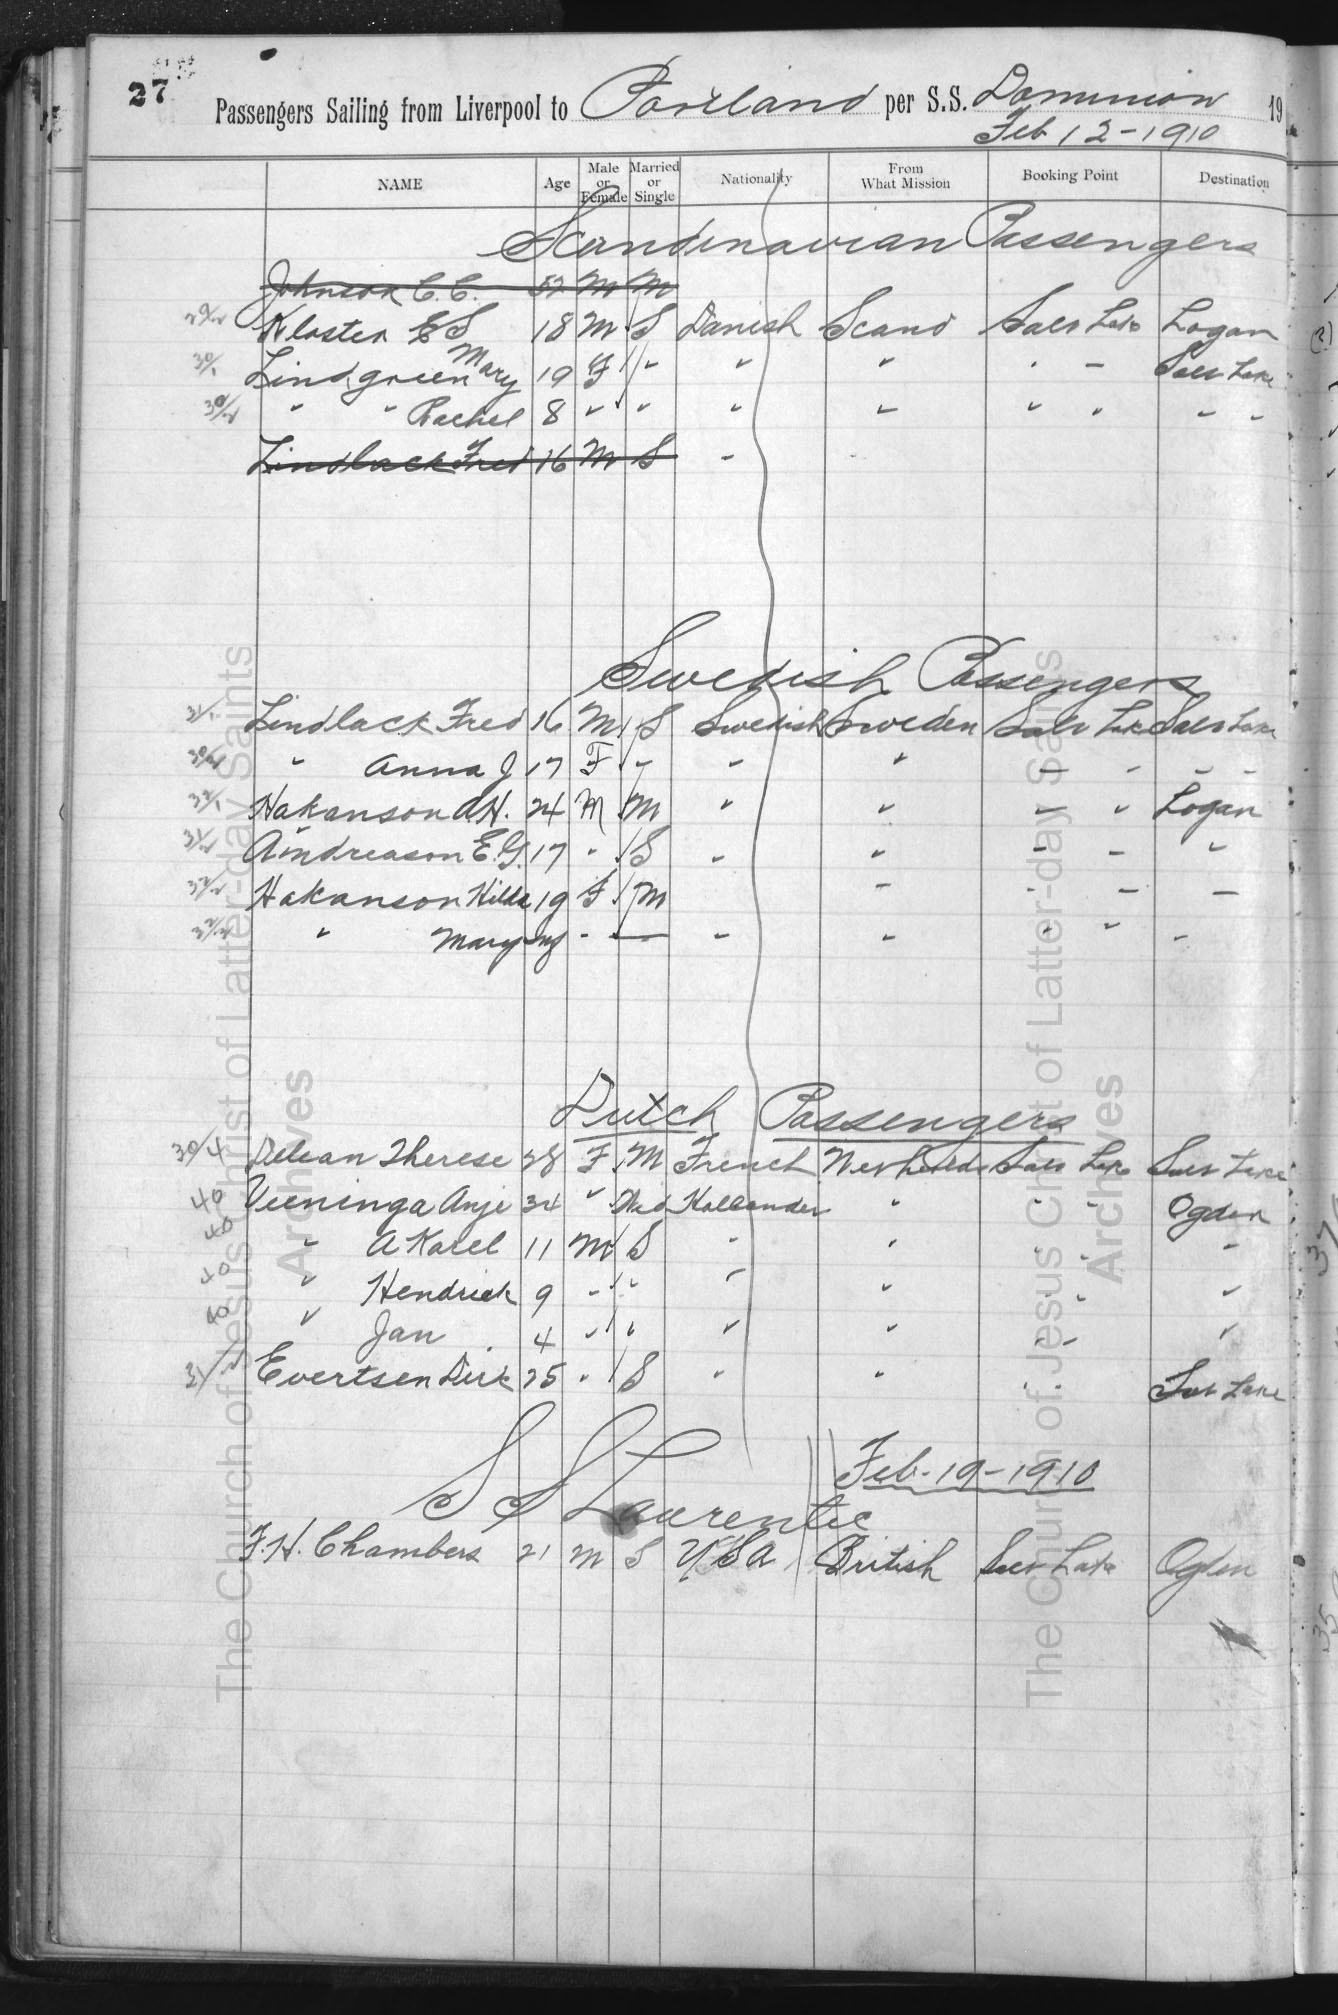 27
Passengers Sailing from Liverpool to Portland per S.S. Dominion 19
Feb 12-1910
NAME Age Male or Female Married or Single Nationality From What Mission Booking Point Destination
Scandinavian Passengers
Johnson C. C. 52 M M
29/2 Kloster E S 18 M S Danish Scand Salt Lake Logan
30/1 Lindgreen Mary 19 F " " " " - Salt Lake
30/2 " " Rachel 8 " " " " " " " "
Lindback Fred 16 M S "
Swedish Passengers
31/1 Lindback Fred 16 M S Swedish Sweden Salt Lake Salt Lake
30/4 " Anna J 17 F " " " " " " "
32/1 Hakanson A H. 24 M M " " " " Logan
31/2 Andreason E. G. 17 " S " " " " "
32/2 Hakanson Hilda 19 F M " " " "
32/2 " Mary " - — " " " " "
Dutch Passengers
30/4 Therese 28 F M French Netherlds Salt Lake Salt Lake
40 Veeninga Anje 34 " Wid Hollander " " " Ogden
40 " A Karel 11 M S " " " " "
40 " Hendrick 9 " " " " " " "
40 " Jan 4 " " " " " " "
31/2 Evertsen Dirk 25 " S " " " " Salt Lake
S S Laurentic Feb-19-1910
F. H. Chambers 21 M S U S A British Salt Lake Ogden
The Church of Jesus Christ of Latter-day Saints
Archives
The Church of Jesus Christ of Latter-day Saints
Archives